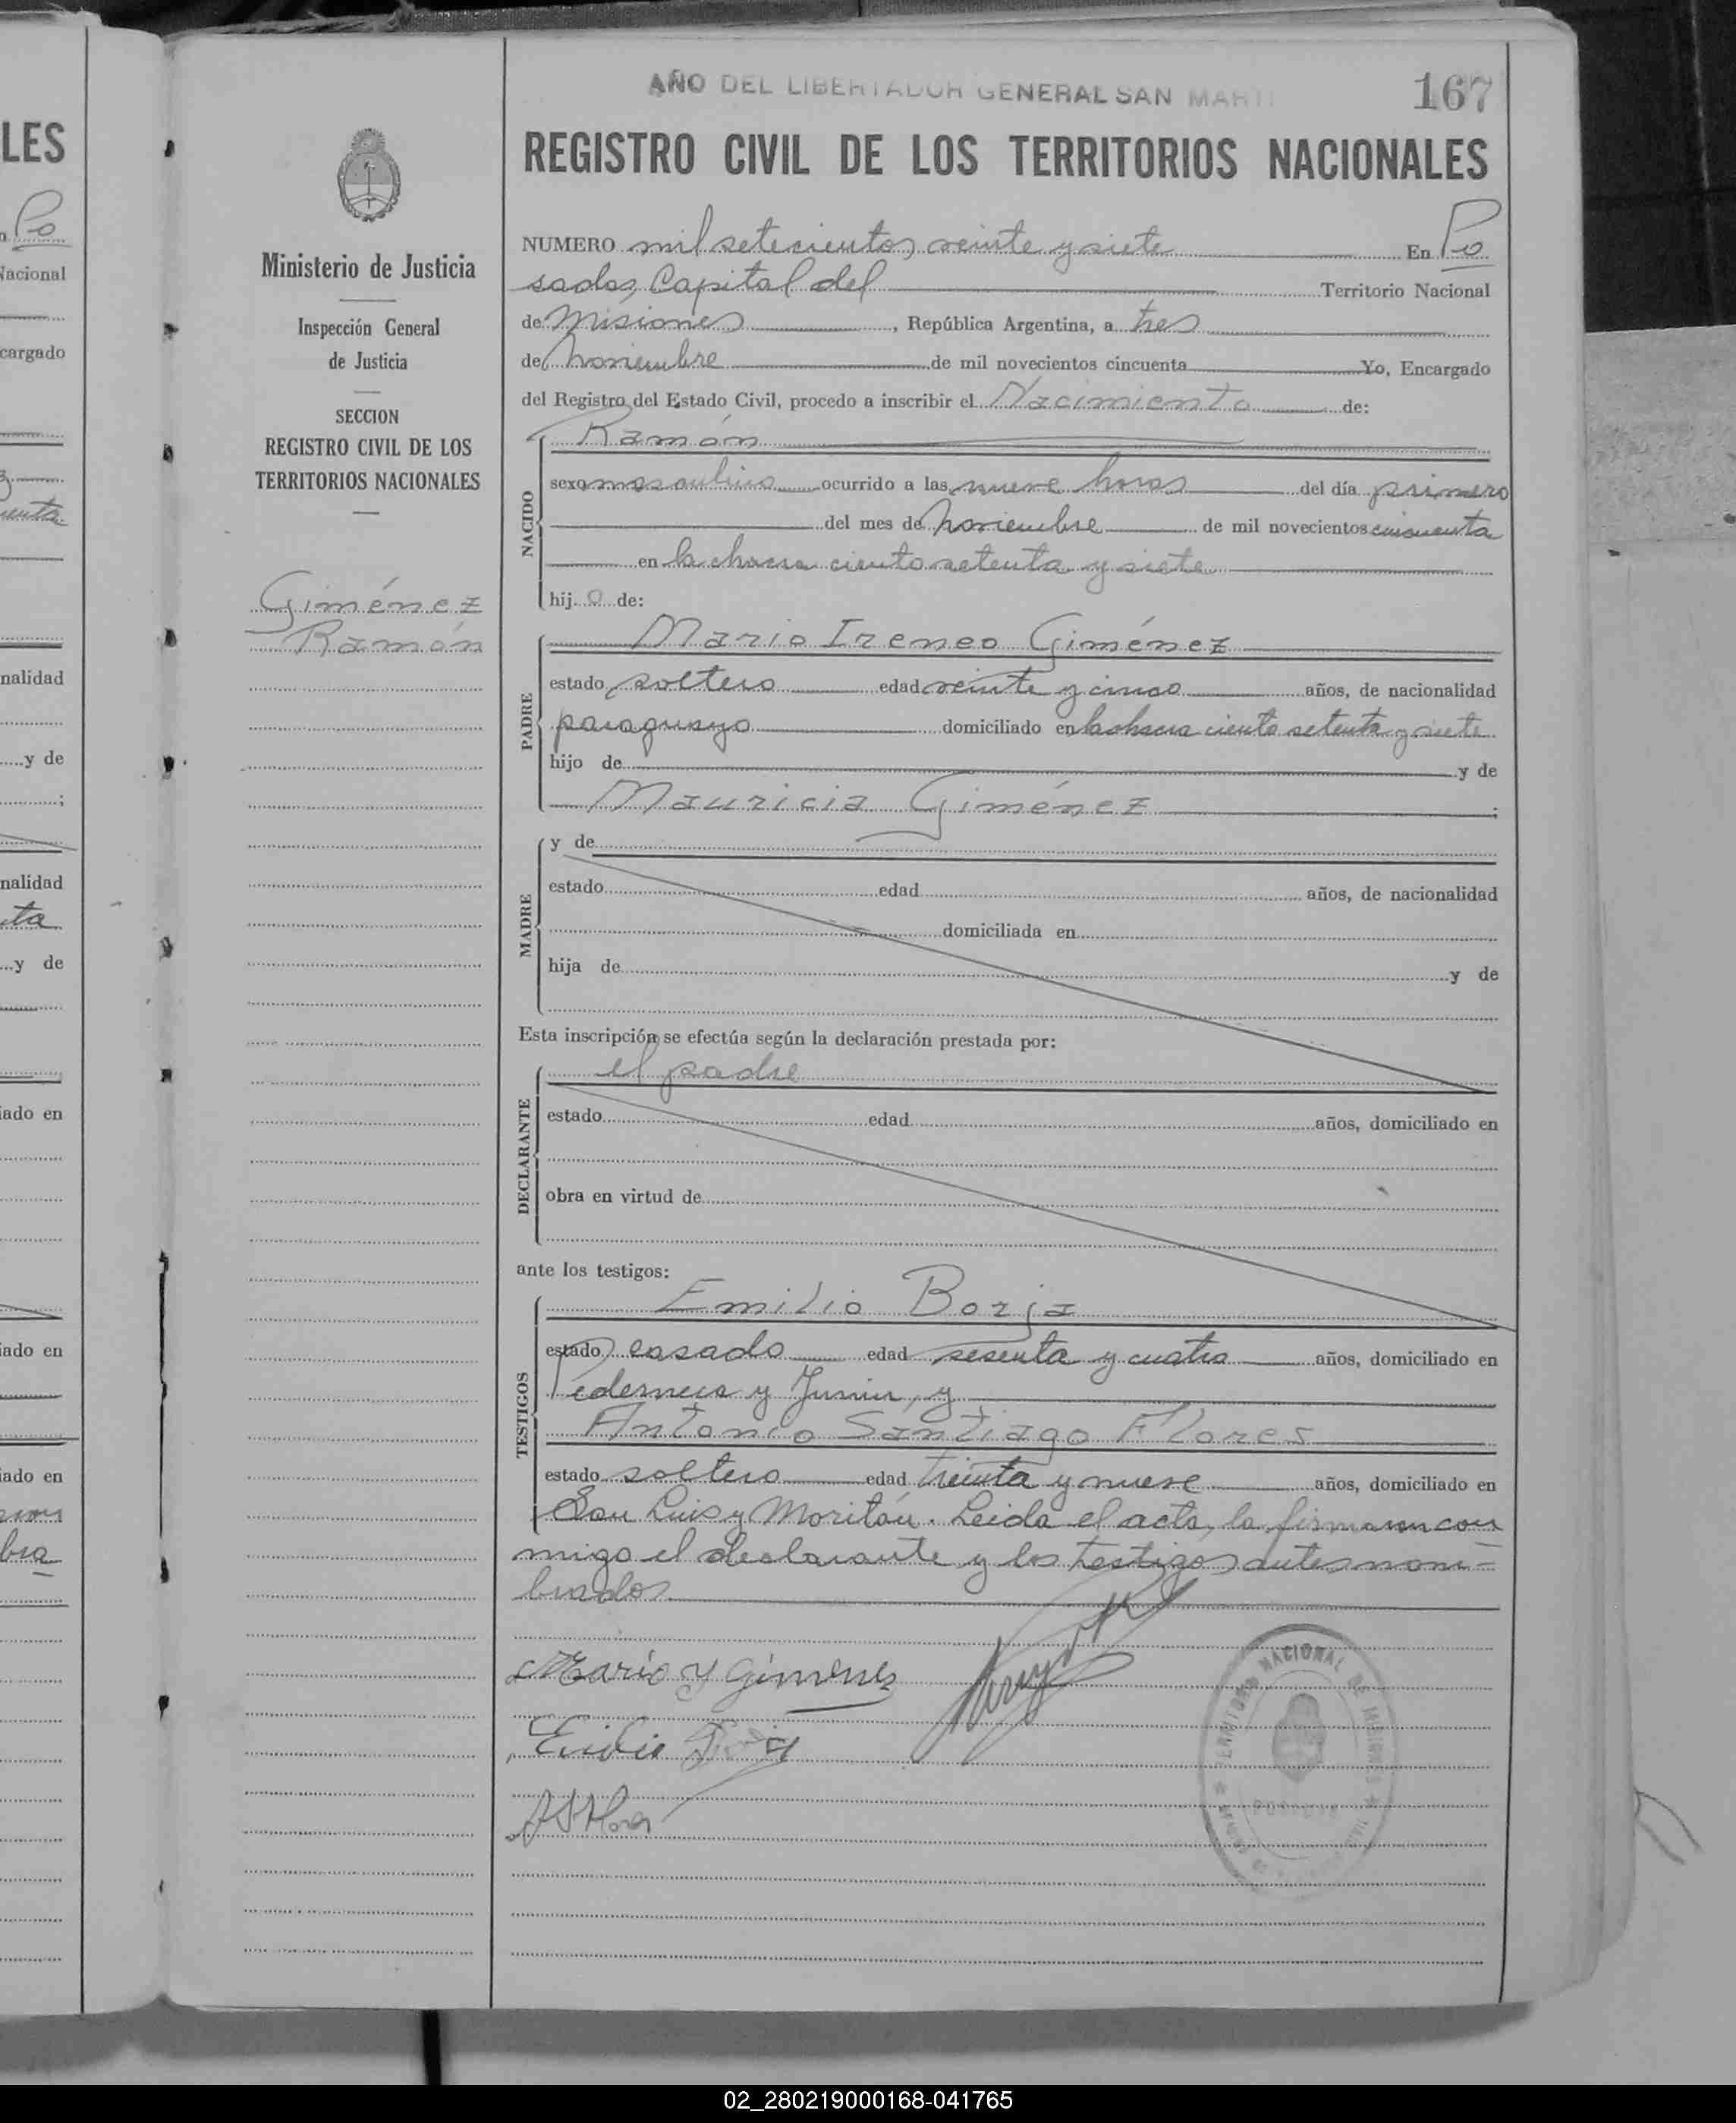 LES
Po
Nacional
cargado
enta
nalidad
y de
;
nalidad
ta
y de
iado en
iado en
iado en
bra
Ministerio de Justicia
Inspección General
de Justicia
SECCION
REGISTRO CIVIL DE LOS
TERRITORIOS NACIONALES
Giménez
Ramón
AÑO DEL LIBERTADOR GENERAL SAN MARTI
167
REGISTRO CIVIL DE LOS TERRITORIOS NACIONALES
NUMERO mil setecientos veinte y siete En Po
sadas, Capital del Territorio Nacional
de Misiones, República Argentina, a tres
de noviembre de mil novecientos cincuenta Yo, Encargado
del Registro del Estado Civil, procedo a inscribir el Nacimiento de:
Ramón
NACIDO
sexo masculino ocurrido a las nueve horas del día primero
del mes de noviembre de mil novecientos cincuenta
en la chacra ciento setenta y siete
hij o de:
Mario Ireneo Giménez
PADRE
estado soltero edad veinte y cinco años, de nacionalidad
paraguayo domiciliado en la chacra ciento setenta y siete
hijo de y de
Mauricia Giménez ;
MADRE
y de
estado edad años, de nacionalidad
domiciliada en
hija de y de
Esta inscripción se efectúa según la declaración prestada por:
el padre
DECLARANTE
estado edad años, domiciliado en
obra en virtud de
ante los testigos:
Emilio Borja
TESTIGOS
estado casado edad sesenta y cuatro años, domiciliado en
Pedernera y Junin, y
Antonio Santiago Flores
estado soltero edad treinta y nueve años, domiciliado en
San Luis y Moritán. Leida el acta, la firmaron con
migo el declarante y los testigos antes nom=
brados.
Mario Y Gimenez
Emilio
A S Flores
TERRITORIO NACIONAL DE MISIONES
POSADAS
02_280219000168-041765